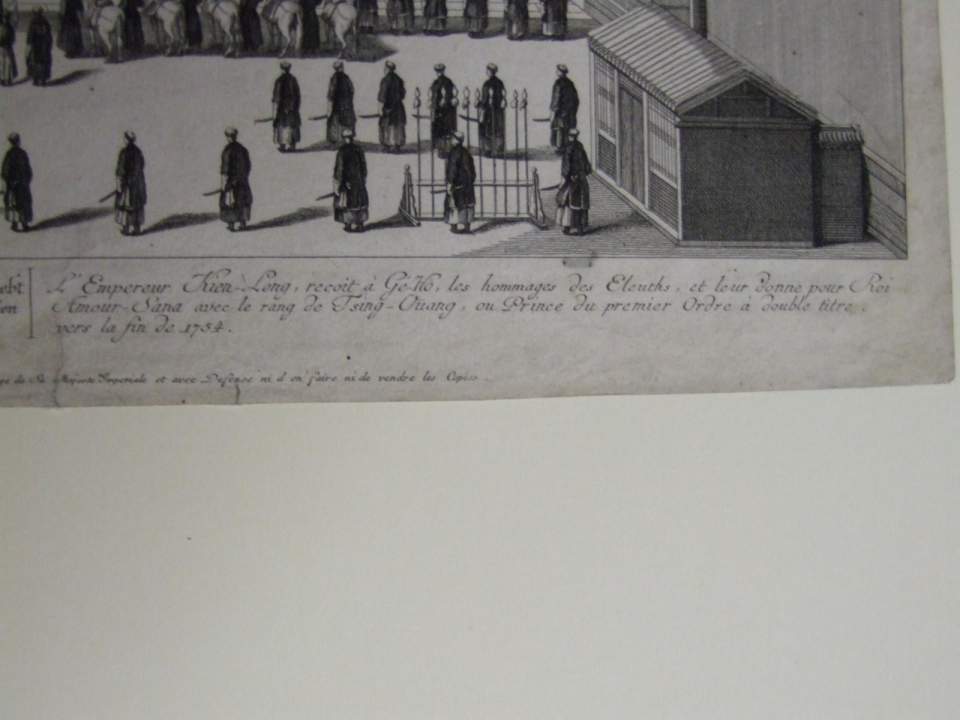 L'Empereur Kien-Long, reçoit à Ge-Ho, les hommages des Eleuths, et leur donne pour Roi
Amour-Sana avec le rang de Tsing-Ouang, ou Prince du premier Ordre à double titre,
vers la fin de 1754.
de Sa Majesté Imperiale et avec Defense ni d'en faire ni de vendre les Copies.